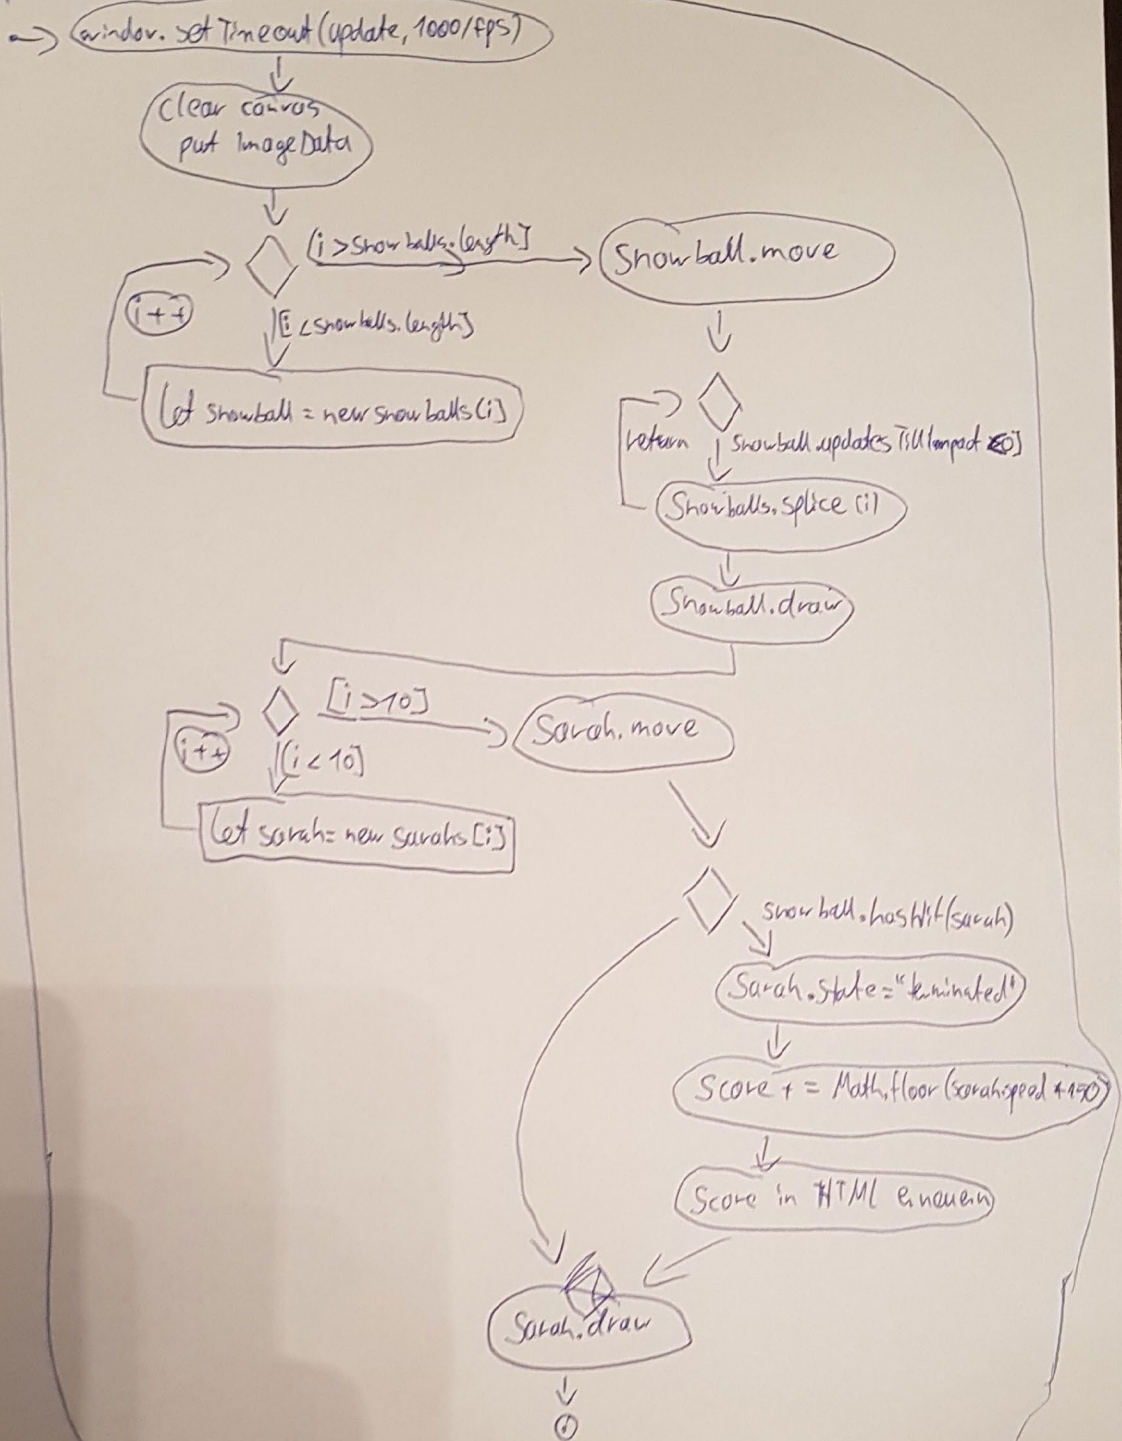 window.setTimeout(update, 1000/fps)
Clear canvas
put ImageData
[i>snowballs.length]
Snowball.move
i++
[i<snowballs.length]
let snowball = new snowballs[i]
return
snowball.updatesTillImpact <0]
Snowballs.splice (i)
Snowball.draw
[i>10]
Sarah.move
i++
[i<10]
let sarah= new sarahs[i]
snowball.hasHit(sarah)
Sarah.state="terminated"
Score += Math.floor(sarah.speed *150)
Score in HTML erneuern
Sarah.draw